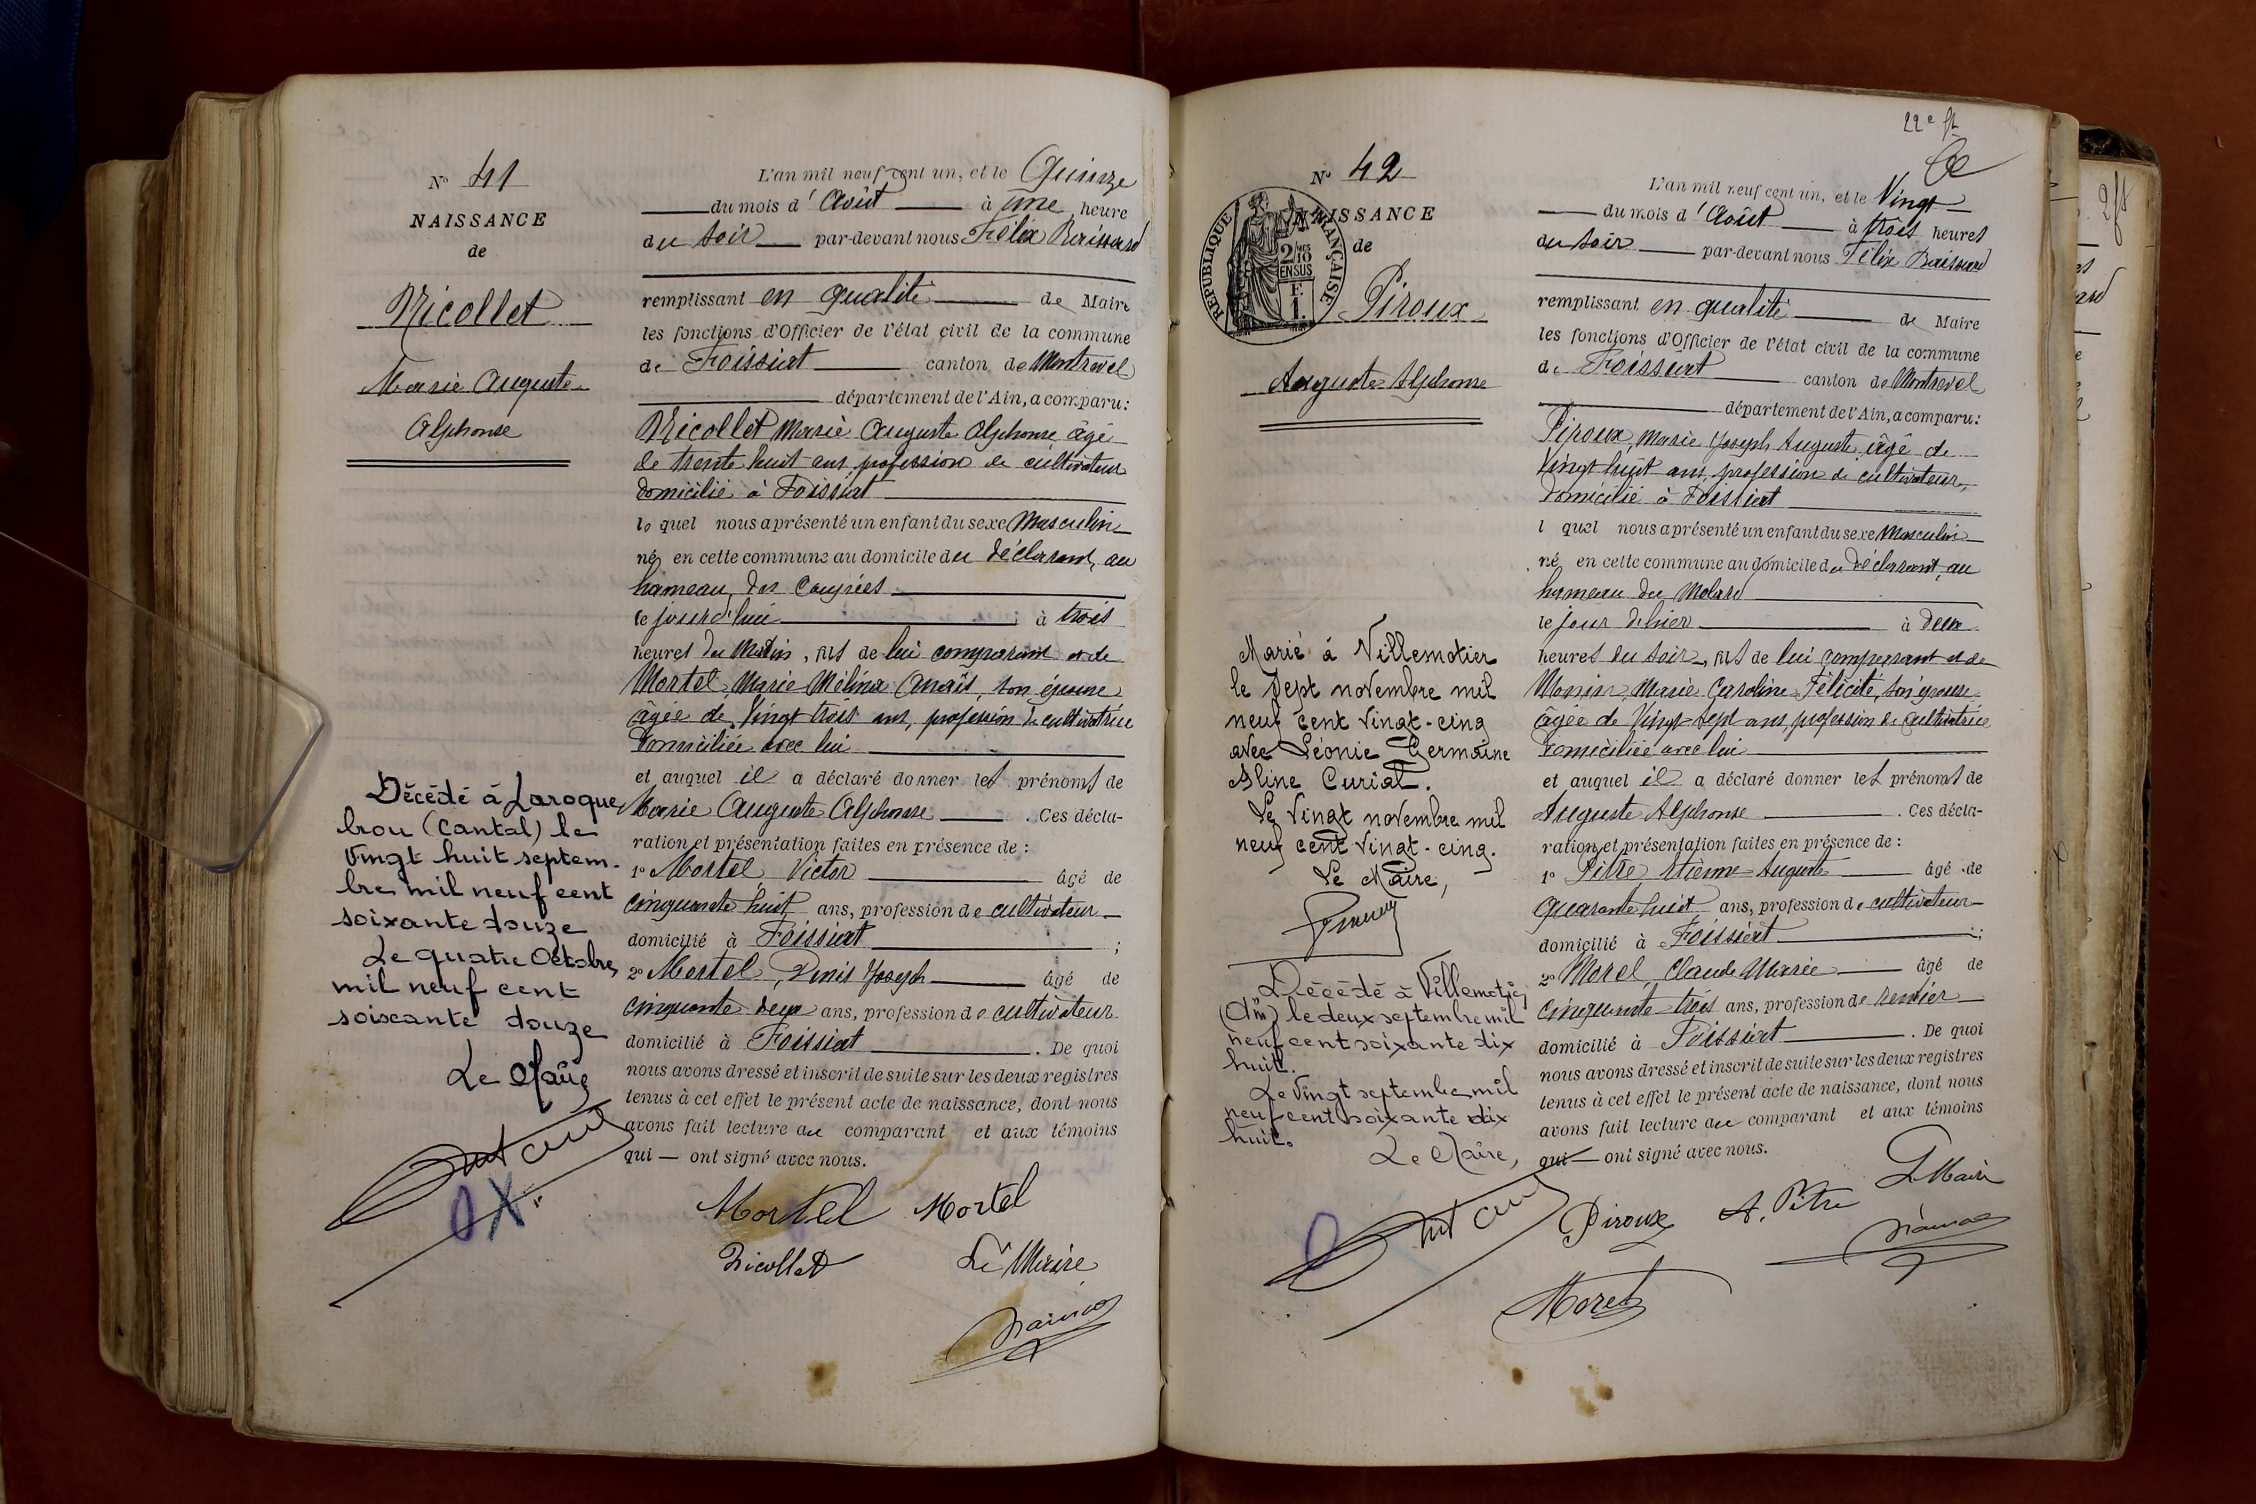 N° 41
NAISSANCE
de
Nicollet
Marie Auguste
Alphonse
Décédé à Laroque
brou (Cantal) le
vingt huit septem-
bre mil neuf cent
soixante douze
Le quatre Octobre
mil neuf cent
soixante douze
Le Maire
L'an mil neuf cent un, et le Quinze
du mois d'Août à une heure
du soir par-devant nous Félix
remplissant en qualité de Maire
les fonctions d'Officier de l'état civil de la commune
de Foissiat canton de Montrevel
département de l'Ain, a comparu:
Nicollet Marie Auguste Alphonse âgé
de trente huit ans, profession de cultivateur
domicilié à Foissiat
lequel nous a présenté un enfant du sexe Masculin
né en cette commune au domicile du déclarant, au
hameau des
le jourd'hui à trois
heures du Matin, fils de lui comparant et de
Mortel Marie Mélina Anaïs, son épouse
âgée de vingt trois ans, profession de cultivatrice
domiciliée avec lui
et auquel il a déclaré donner les prénoms de
Marie Auguste Alphonse . Ces décla-
ration et présentation faites en présence de :
1° Mortel, Victor âgé de
cinquante huit ans, profession de cultivateur
domicilié à Foissiat ;
2° Mortel, Denis Joseph âgé de
cinquante deux ans, profession de cultivateur
domicilié à Foissiat . De quoi
nous avons dressé et inscrit de suite sur les deux registres
tenus à cet effet le présent acte de naissance, dont nous
avons fait lecture au comparant et aux témoins
qui — ont signé avec nous.
Mortel Mortel
Nicollet Le Maire
22e ft
N° 42
NAISSANCE
de
REPUBLIQUE FRANÇAISE
2/10
EN SUS
F.
1.
Piroux
Auguste Alphonse
Marié à Villemotier
le sept novembre mil
neuf cent vingt-cinq
avec Léonie Germaine
Aline Curial.
Le vingt novembre mil
neuf cent vingt-cinq.
Le Maire,
Décédé à Villemotier
(Ain) le deux septembre mil
neuf cent soixante dix
huit.
Le vingt septembre mil
neuf cent soixante dix
huit.
Le Maire,
L'an mil neuf cent un, et le Vingt
du mois d'Août à trois heures
du soir par-devant nous Félix
remplissant en qualité de Maire
les fonctions d'Officier de l'état civil de la commune
de Foissiat canton de Montrevel
département de l'Ain, a comparu:
Piroux, Marie Joseph Auguste âgé de
vingt huit ans, profession de cultivateur,
domicilié à Foissiat
l quel nous a présenté un enfant du sexe Masculin
né en cette commune au domicile du déclarant, au
hameau du Molard
le jour d'hier à deux
heures du soir, fils de lui comparant et de
Marie Caroline Félicité, son épouse
âgée de vingt-sept ans, profession de cultivatrice
domiciliée avec lui
et auquel il a déclaré donner les prénoms de
Auguste Alphonse . Ces décla-
ration et présentation faites en présence de :
1° Pitre, Etienne Auguste âgé de
quarante huit ans, profession de cultivateur
domicilié à Foissiat ;
2° Morel, Claude Marie âgé de
cinquante trois ans, profession de rentier
domicilié à Foissiat . De quoi
nous avons dressé et inscrit de suite sur les deux registres
tenus à cet effet le présent acte de naissance, dont nous
avons fait lecture au comparant et aux témoins
qui — ont signé avec nous.
Piroux A. Pitre Le Maire
Morel